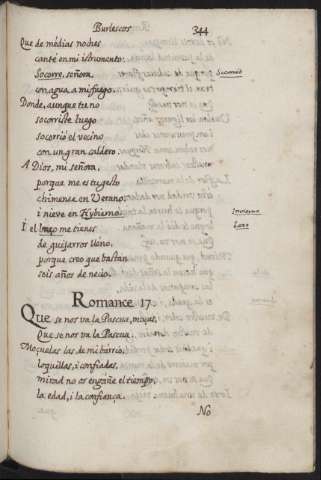 Burlescos
344
Que de medias noches
canté en mi istrumento:
Socorre, señora,
con agua, a mi fuego.
Donde, aunque tu no
socorriste luego
socorrió el vecino
con un gran caldero.
A Dios, mi señora,
porque me es tu gesto
chimenea en Verano,
i nieve en Hybierno.
I el me tienes
de guijarros lleno,
porque creo que bastan
seis años de necio.
Romance 17.
Que se nos va la Pascua, moças,
Que se nos va la Pascua.
Moçuelas las de mi barrio,
loquillas, i confiadas,
mirad no os engañe el tiempo,
la edad, i la confiança.
No